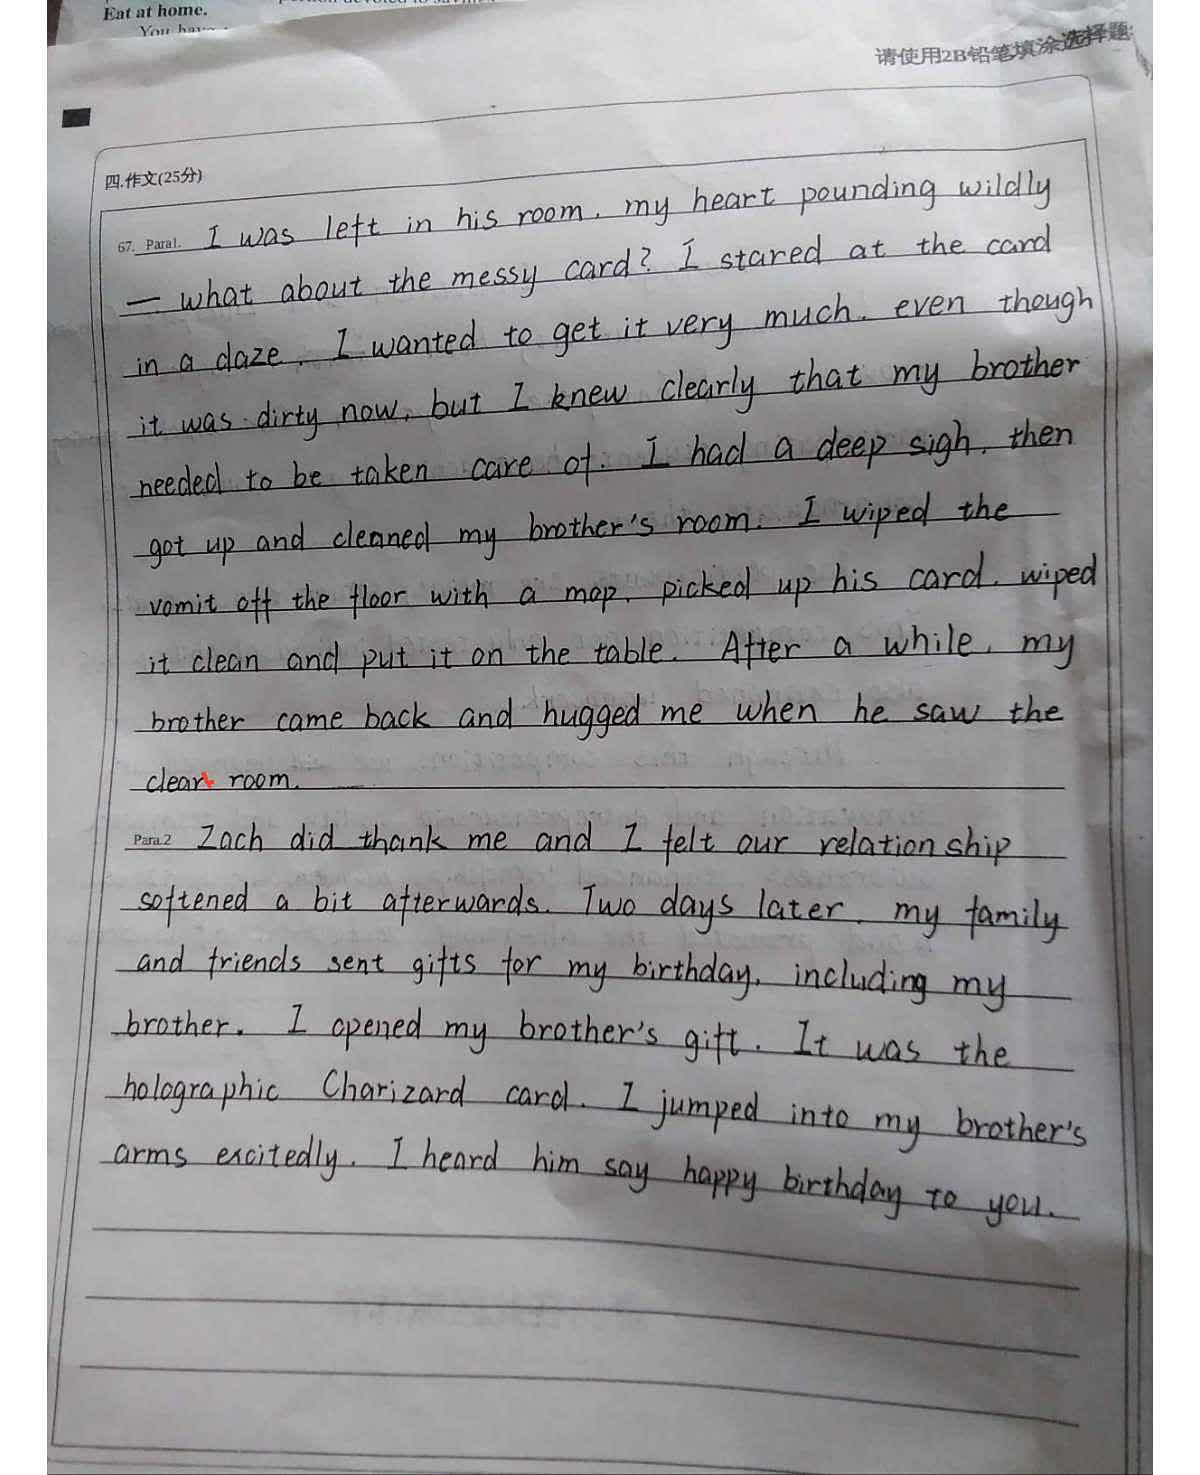 Eat at home.
You have
请使用2B铅笔填涂选择题
四.作文(25分)
67. Para1. I was left in his room, my heart pounding wildly
— what about the messy card? I stared at the card
in a daze. I wanted to get it very much, even though
it was dirty now, but I knew clearly that my brother
needed to be taken care of. I had a deep sigh, then
got up and cleaned my brother's room. I wiped the
vomit off the floor with a mop, picked up his card, wiped
it clean and put it on the table. After a while, my
brother came back and hugged me when he saw the
clean room.
Para.2 Zach did thank me and I felt our relationship
softened a bit afterwards. Two days later, my family
and friends sent gifts for my birthday, including my
brother. I opened my brother's gift. It was the
holographic Charizard card. I jumped into my brother's
arms excitedly. I heard him say happy birthday to you.